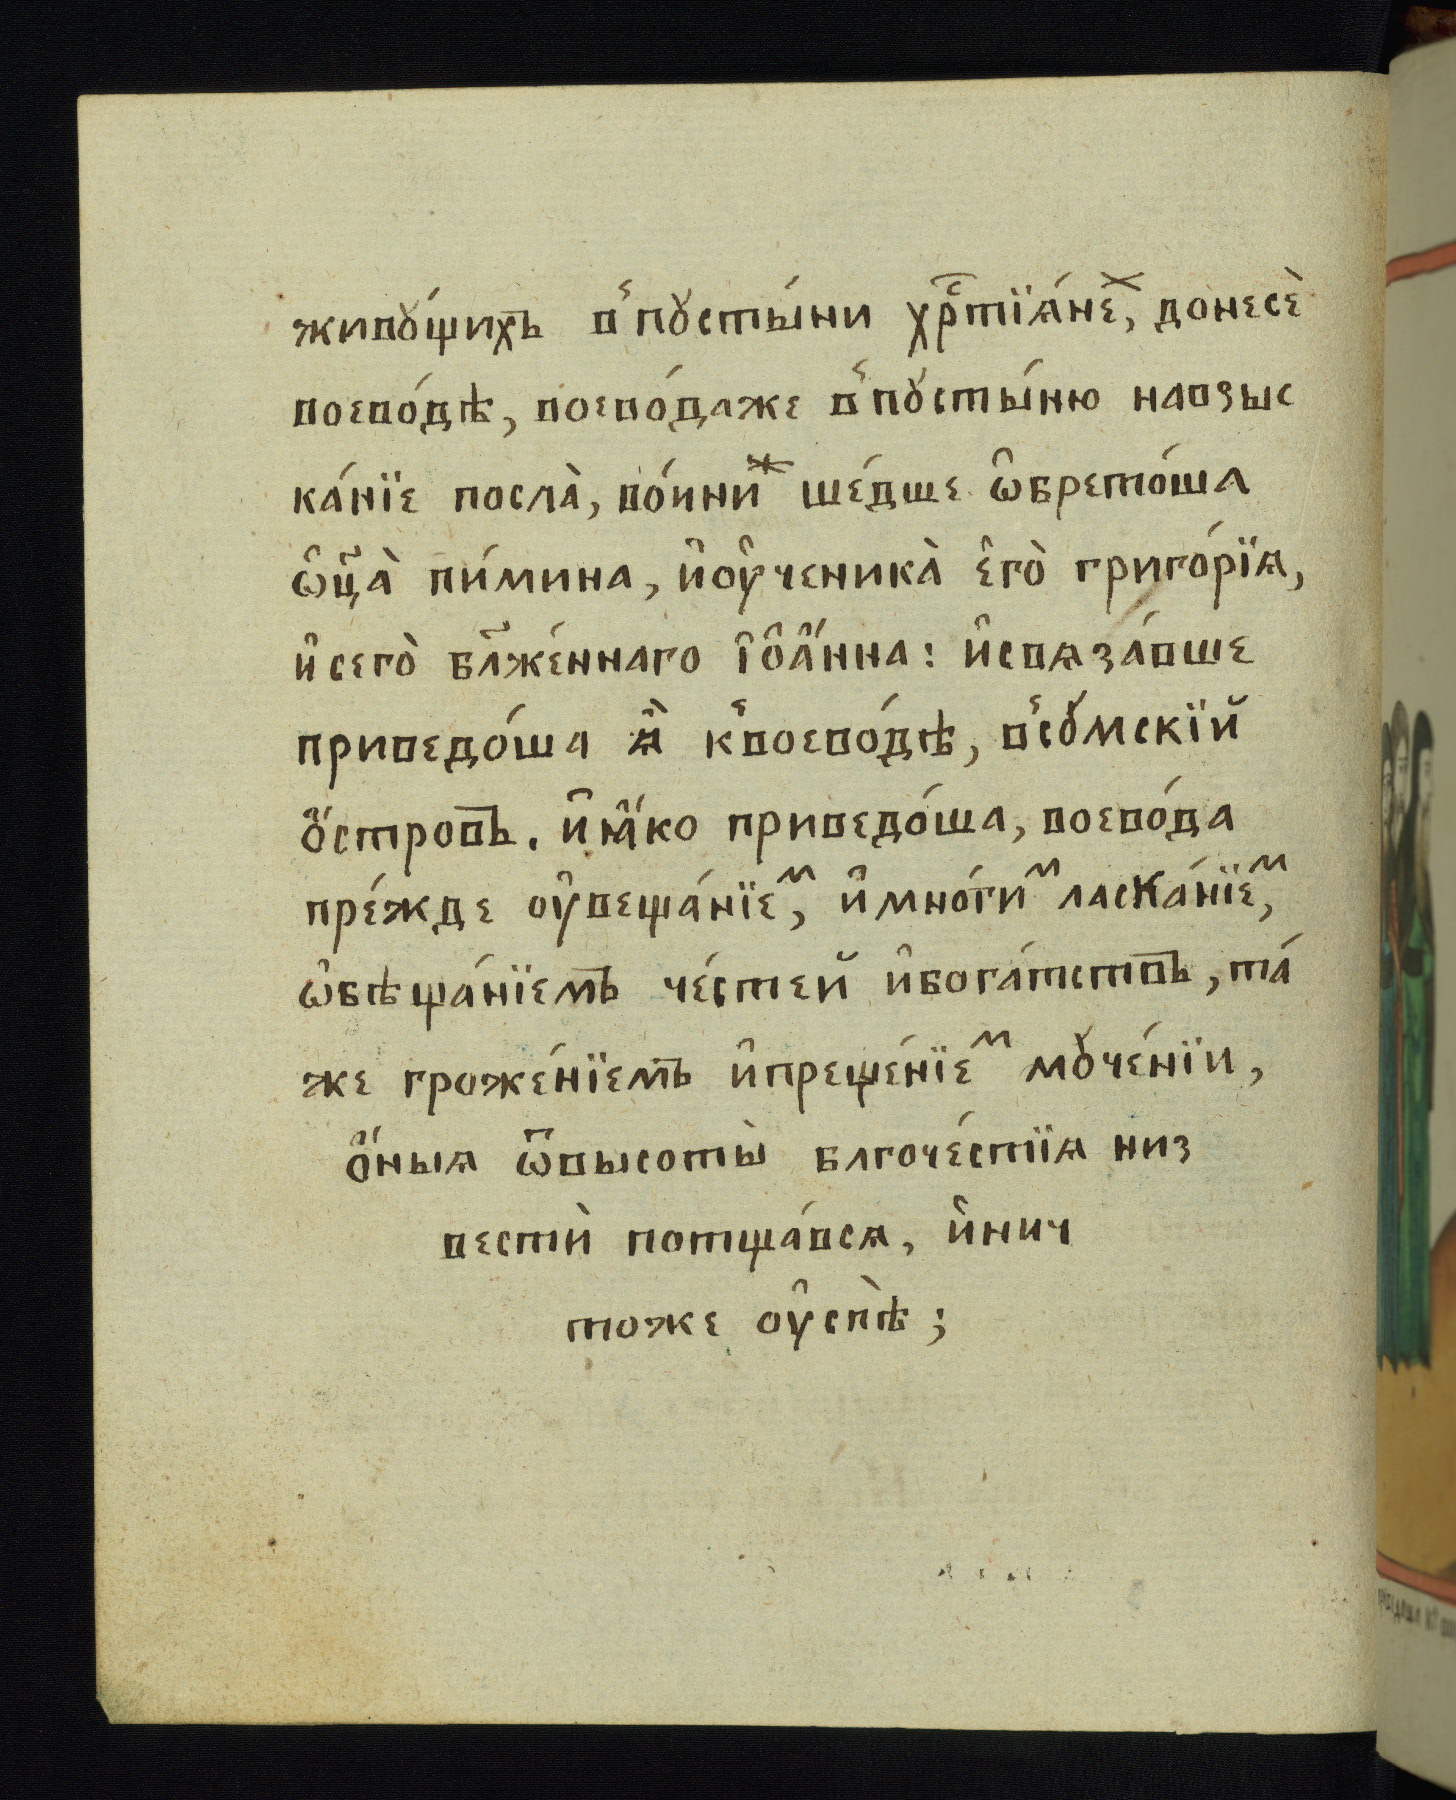 живꙋ́щихъ в̾пꙋсты́ни хрⷭ҇тїѧ́неⷯ, донесѐ
воево́дѣ, воево́даже в̾пꙋсты́ню навзыс
ка́нїе посла̀, во́иниⷤ ше́дше ѡ҆брето́ша
ѡ҆ц҃а̀ пи́мина, и҆оу҆ченика̀ є҆го̀ григо́рїѧ,
и҆сего̀ бл҃же́ннаго і҆ѻ҆а҆́нна: и҆свѧза́вше
приведо́ша ѧ҆̀ к̾воево́дѣ, в̾сꙋ́мскїй
ѻ҆́стровъ. и҆ꙗ҆́ко приведо́ша, воево́да
пре́жде оу҆веща́нїеⷨ, и҆мно́гиⷨ ласка́нїеⷨ,
ѡ҆бѣща́нїемъ че́стей и҆бога́тствъ, та́
же гроже́нїемъ и҆преще́нїеⷨ мꙋче́нїи,
ѻ҆́ныѧ ѿвысоты̀ благоче́стїѧ низ
вестѝ потща́всѧ, и҆нич
тоже оу҆спѣ̀;